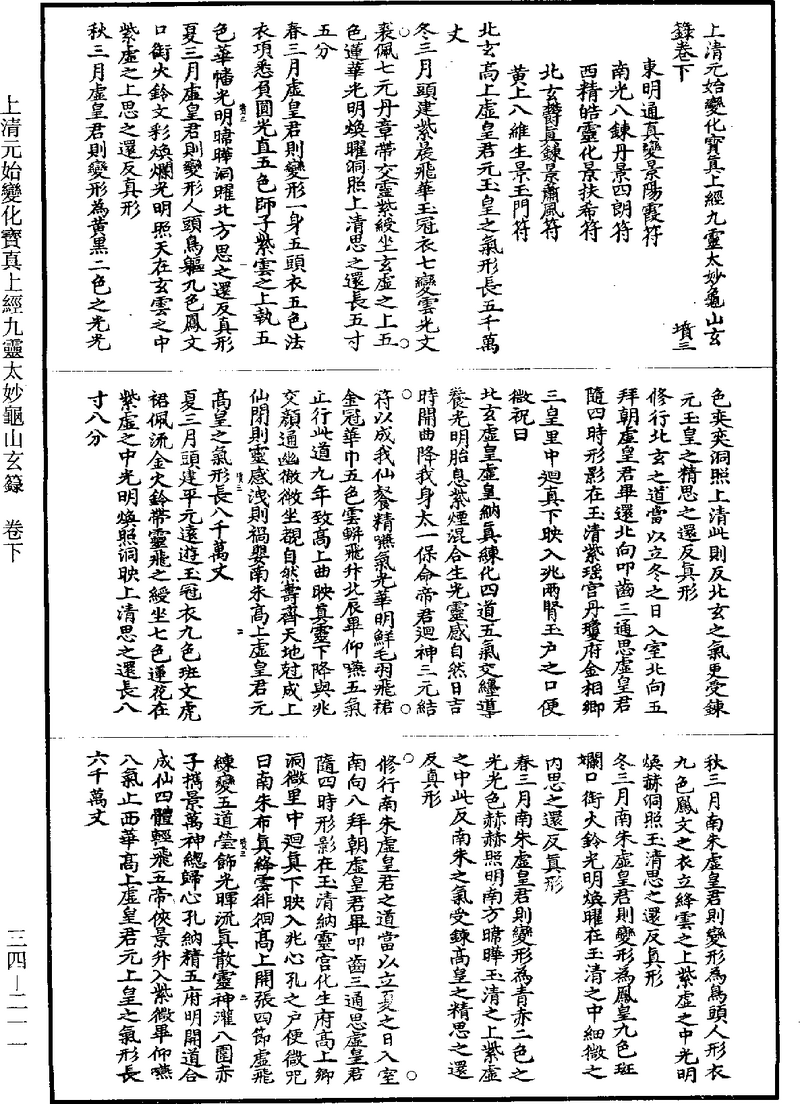 上清元始變化寶真上經九靈太妙龜山玄
籙卷下
墳三
東明通真變景陽霞符
南光八鍊丹景四朗符
西精皓靈化景扶希符
北玄欝真鍊景肅風符
黄上八維生景玉門符
北玄高上虛皇君元玉皇之氣形長五千萬
丈
冬三月頭建紫晨飛華玉冠衣七變雲光文
裘佩七元丹章帶交靈紫綬坐玄虛之上五
色蓮華光明煥曜洞照上清思之還長五寸
五分
春三月虛皇君則變形一身五頭衣五色法
衣項悉負圓光直五色師子紫雲之上執五
色華幡光明暐曄洞曜北方思之還反真形
夏三月虛皇君則變形人頭鳥軀九色鳳文
口銜火鈴文彩煥爛光明照天在玄雲之中
紫虛之上思之還反真形
秋三月虛皇君則變形為黄黑二色之光光
色奕奕洞照上清此則反北玄之氣更受鍊
元玉皇之精思之還反真形
修行北玄之道當以立冬之日入室北向五
拜朝虛皇君畢還北向叩齒三通思虛皇君
隨四時形影在玉清紫瑶宫丹瓊府金相鄉
三皇里中迴真下映入兆兩腎玉户之口便
微祝曰
北玄虛皇虛皇納真練化四道五氣交纏導
養光明胎息紫煙混合生光靈感自然日吉
時開曲降我身太一保命帝君迴神三元結
符以成我仙餐精嚥氣光華明鮮毛羽飛裙
金冠華巾五色雲軿飛升北辰畢仰嚥五氣
止行此道九年致高上曲映真靈下降與兆
交顏通幽徹微坐觀自然壽齊天地尅成上
仙閉則靈感洩則禍嬰南朱高上虛皇君元
高皇之氣形長八千萬丈
夏三月頭建平元遠遊玉冠衣九色班文虎
裙佩流金火鈴帶靈飛之綬坐七色蓮花在
紫虛之中光明煥照洞映上清思之還長八
寸八分
秋三月南朱虛皇君則變形為鳥頭人形衣
九色鳳文之衣立絳雲之上紫虛之中光明
煥赫洞照玉清思之還反真形
冬三月南朱虛皇君則變形為鳳皇九色班
爛口銜火鈴光明煥曜在玉清之中細微之
内思之還反真形
春三月南朱虛皇君則變形為青赤二色之
光光色赫赫照明南方暐曄玉清之上紫虛
之中此反南朱之氣受鍊高皇之精思之還
反真形
修行南朱虛皇君之道當以立夏之日入室
南向八拜朝虛皇君畢叩齒三通思虛皇君
隨四時形影在玉清納靈宫化生府高上鄉
洞微里中迴真下映入兆心孔之户便微咒
曰南朱布真絳雲徘徊高上開張四節虛飛
練變五道瑩飾光暉流真散靈神灌八圍赤
子攜景萬神總歸心孔納精五府明開道合
成仙四體輕飛五帝俠景升入紫微畢仰嚥
八氣止西華高上虛皇君元上皇之氣形長
六千萬丈
上清元始變化寶真上經九靈太妙龜山玄籙　卷下
三四—二一一